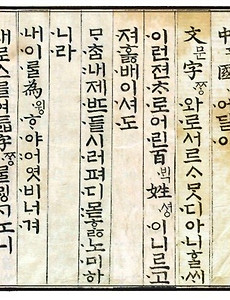 中國에달아
文문字ᄍᆞᆼ와로서르ᄉᆞᄆᆞᆺ디아니ᄒᆞᆯᄊᆡ
이런젼ᄎᆞ로어린百ᄇᆡᆨ姓셩이니르고
져호ᇙ배이셔도
ᄆᆞᄎᆞᆷ내제ᄠᅳ들시러펴디몯ᄒᆞᇙ노미하
니라
내이ᄅᆞᆯ為윙ᄒᆞ야어엿비너겨
새로스믈여듧字ᄍᆞᆼᄅᆞᆯᄆᆡᇰᄀᆞ노니